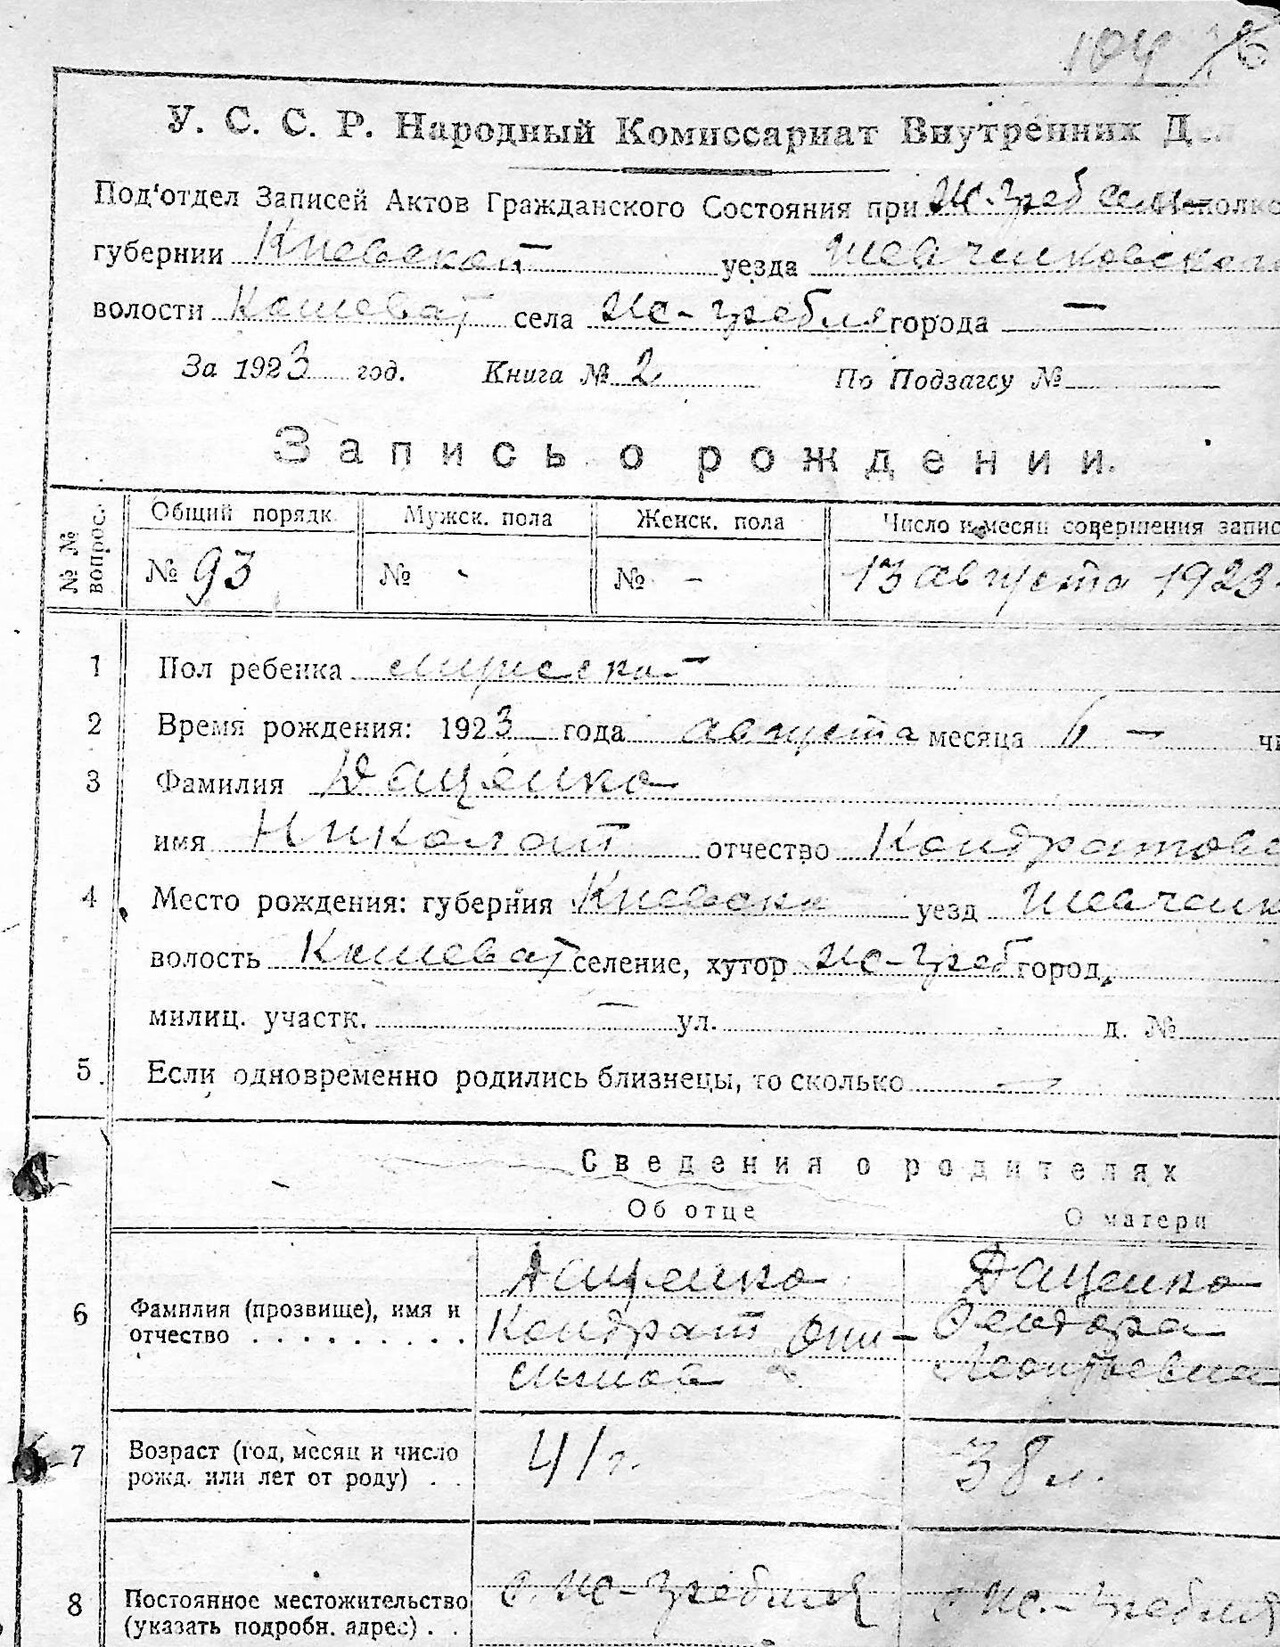 104
У. С. С. Р. Народный Комиссариат Внутренних Дел
Под'отдел Записей Актов Гражданского Состояния при Ж-Греб сель- Исполко
губернии Киевской уезда Шевченковского
волости Кошеват села Ж-Гребля города —
За 1923 год. Книга № 2 По Подзагсу №
Запись о рождении.
№ № вопрос. Общий порядк. Мужск. пола Женск. пола Число и месяц совершения запис
№ 93 № - № - 13 августа 1923
1 Пол ребенка мужской
2 Время рождения: 1923 года августа месяца 6 — чи
3 Фамилия Даценко
имя Николай отчество Кондратове
4 Место рождения: губерния Киевск уезд Шевченк
волость Кошеват селение, хутор Ж-Греб город,
милиц. участк. — ул. д. №
5 Если одновременно родились близнецы, то сколько —
Сведения о родителях
Об отце О матери
6 Фамилия (прозвище), имя и отчество Даценко Даценко
Кондрат Они- Феодора
Леонтьевна
7 Возраст (год, месяц и число рожд. или лет от роду) 41 г. 38 л.
8 Постоянное местожительство (указать подробн. адрес) с. Ж-Гребля с. Ж.-Гребля